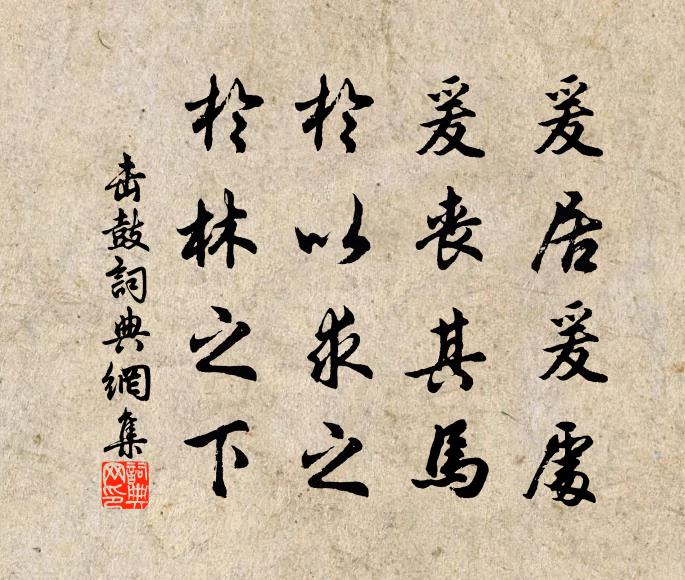 爰居爰處
爰喪其馬
於以求之
於林之下
击鼓詞典網集
詞典網印